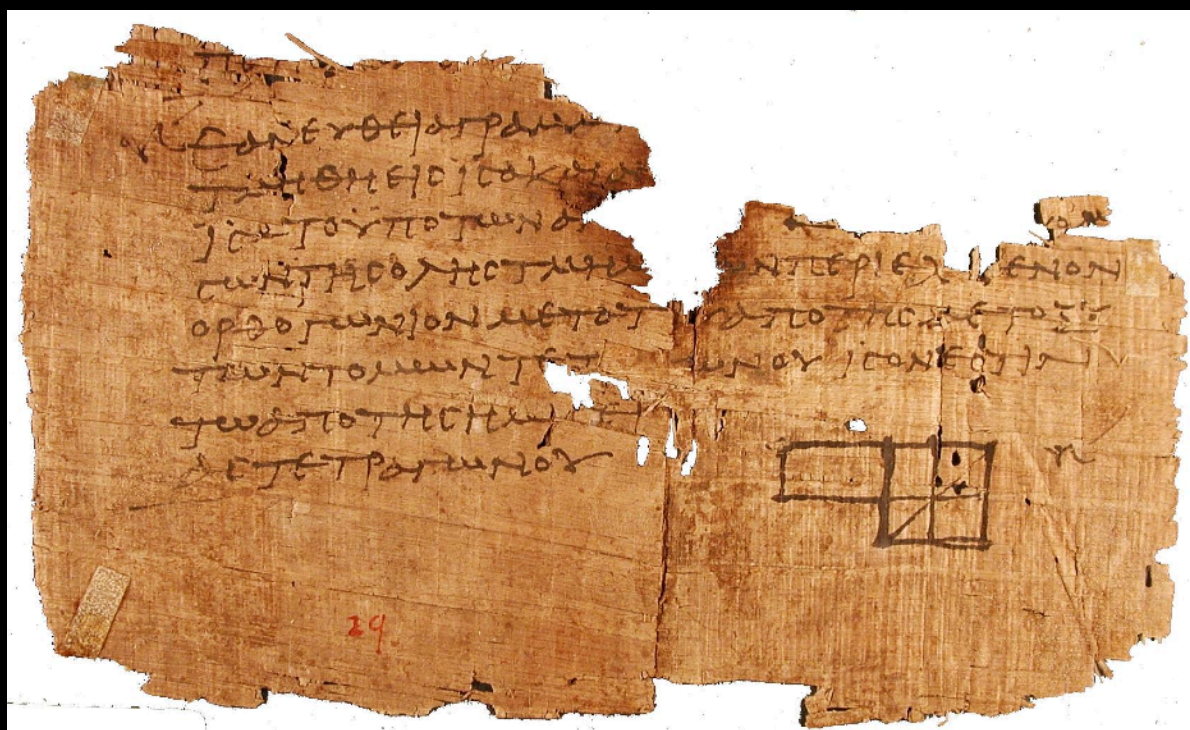 ΕΑΝΕΥΘΕΙΑΓΡΑΜΜ
ΤΜΗΘΗΕΙϹΙϹΟΚΑΙΑ
ΙϹΑΤΟΥΠΟΤΩΝΑ
ϹΩΝΤΗϹΟΛΗϹΤΜΗΜ ΩΝΠΕΡΙΕΧ ΜΕΝΟΝ
ΟΡΘΟΓΩΝΙΟΝΜΕΤΟΤ ΥΑΠΟΤΗϹΜΕΤΟΞΥ
ΤΩΝΤΟΜΩΝΤΕΤ ΩΝΟΥΙϹΟΝΕϹΤΙΝ
ΤΩΑΠΟΤΗϹΗΜΙ ΕΙ
ΑϹΤΕΤΡΑΓΩΝΟΥ
29